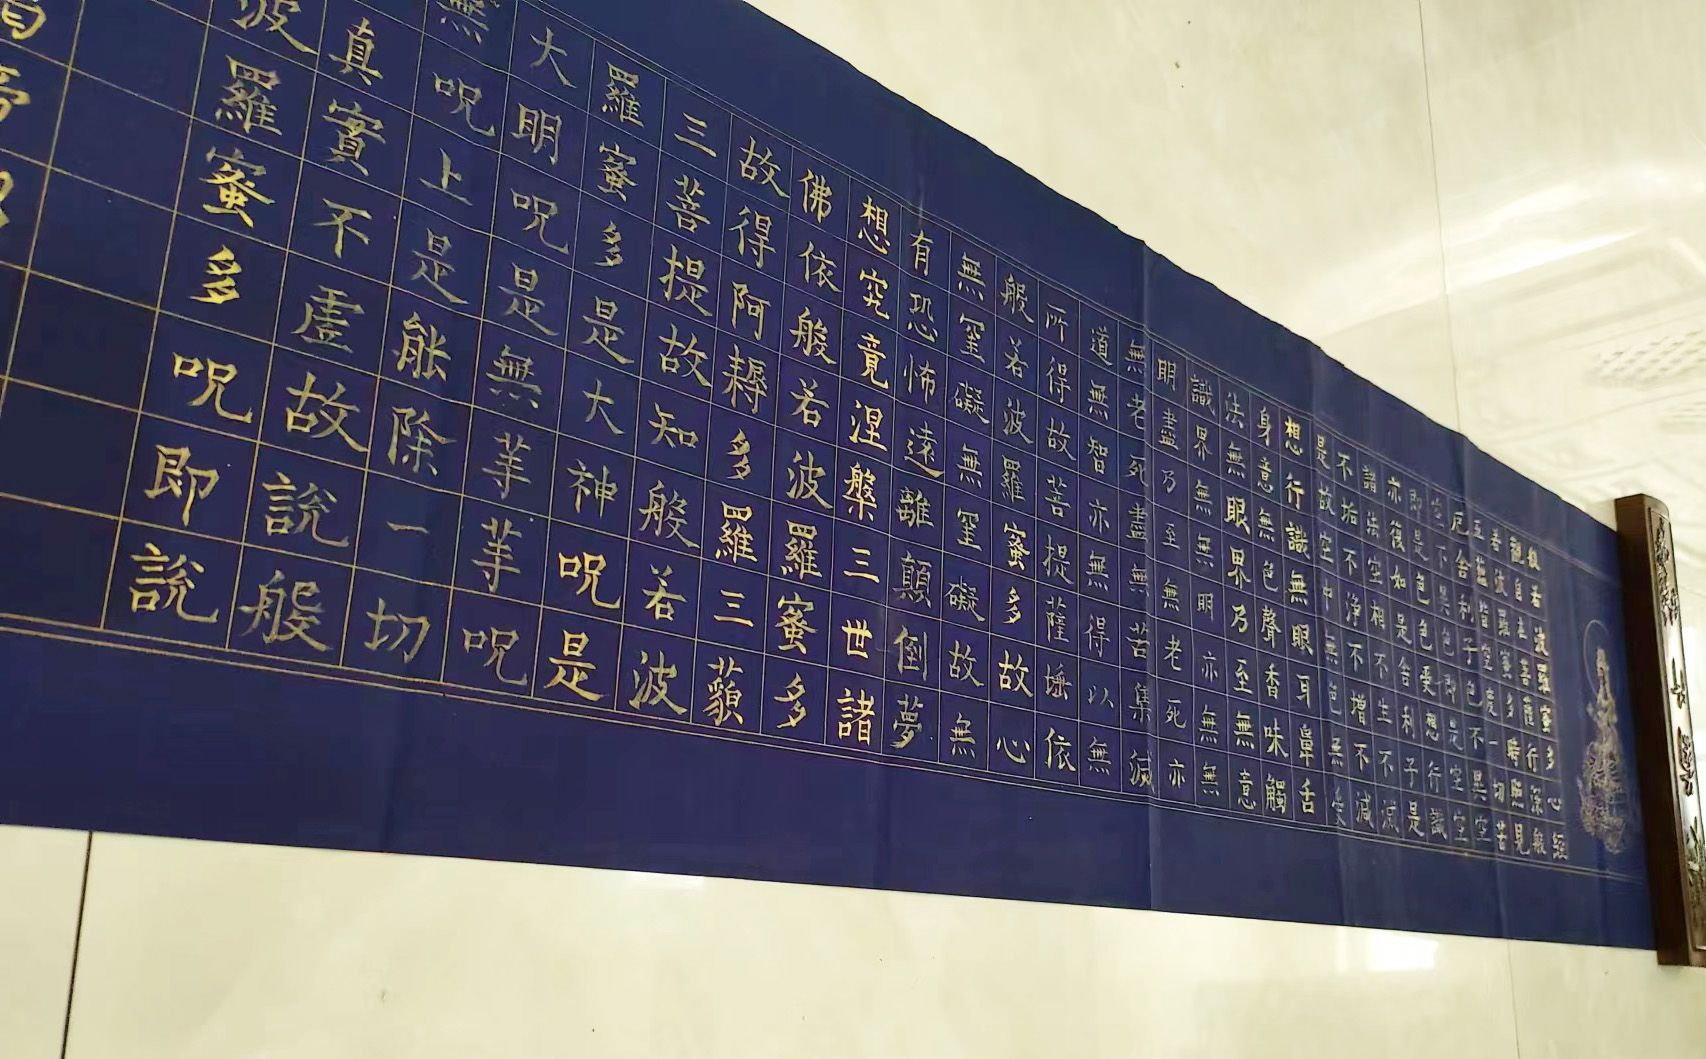 般若波羅蜜多心經
觀自在菩薩行深般
若波羅蜜多時照見
五蘊皆空度一切苦
厄舍利子色不異空
空不異色色即是空
空即是色受想行識
亦復如是舍利子是
諸法空相不生不滅
不垢不淨不增不減
是故空中無色無受
想行識無眼耳鼻舌
身意無色聲香味觸
法無眼界乃至無意
識界無無明亦無無
明盡乃至無老死亦
無老死盡無苦集滅
道無智亦無得以無
所得故菩提薩埵依
般若波羅蜜多故心
無罣礙無罣礙故無
有恐怖遠離顛倒夢
想究竟涅槃三世諸
佛依般若波羅蜜多
故得阿耨多羅三藐
三菩提故知般若波
羅蜜多是大神呪是
大明呪是無等等呪
無呪上是能除一切
真實不虛故說般
波羅蜜多呪即說